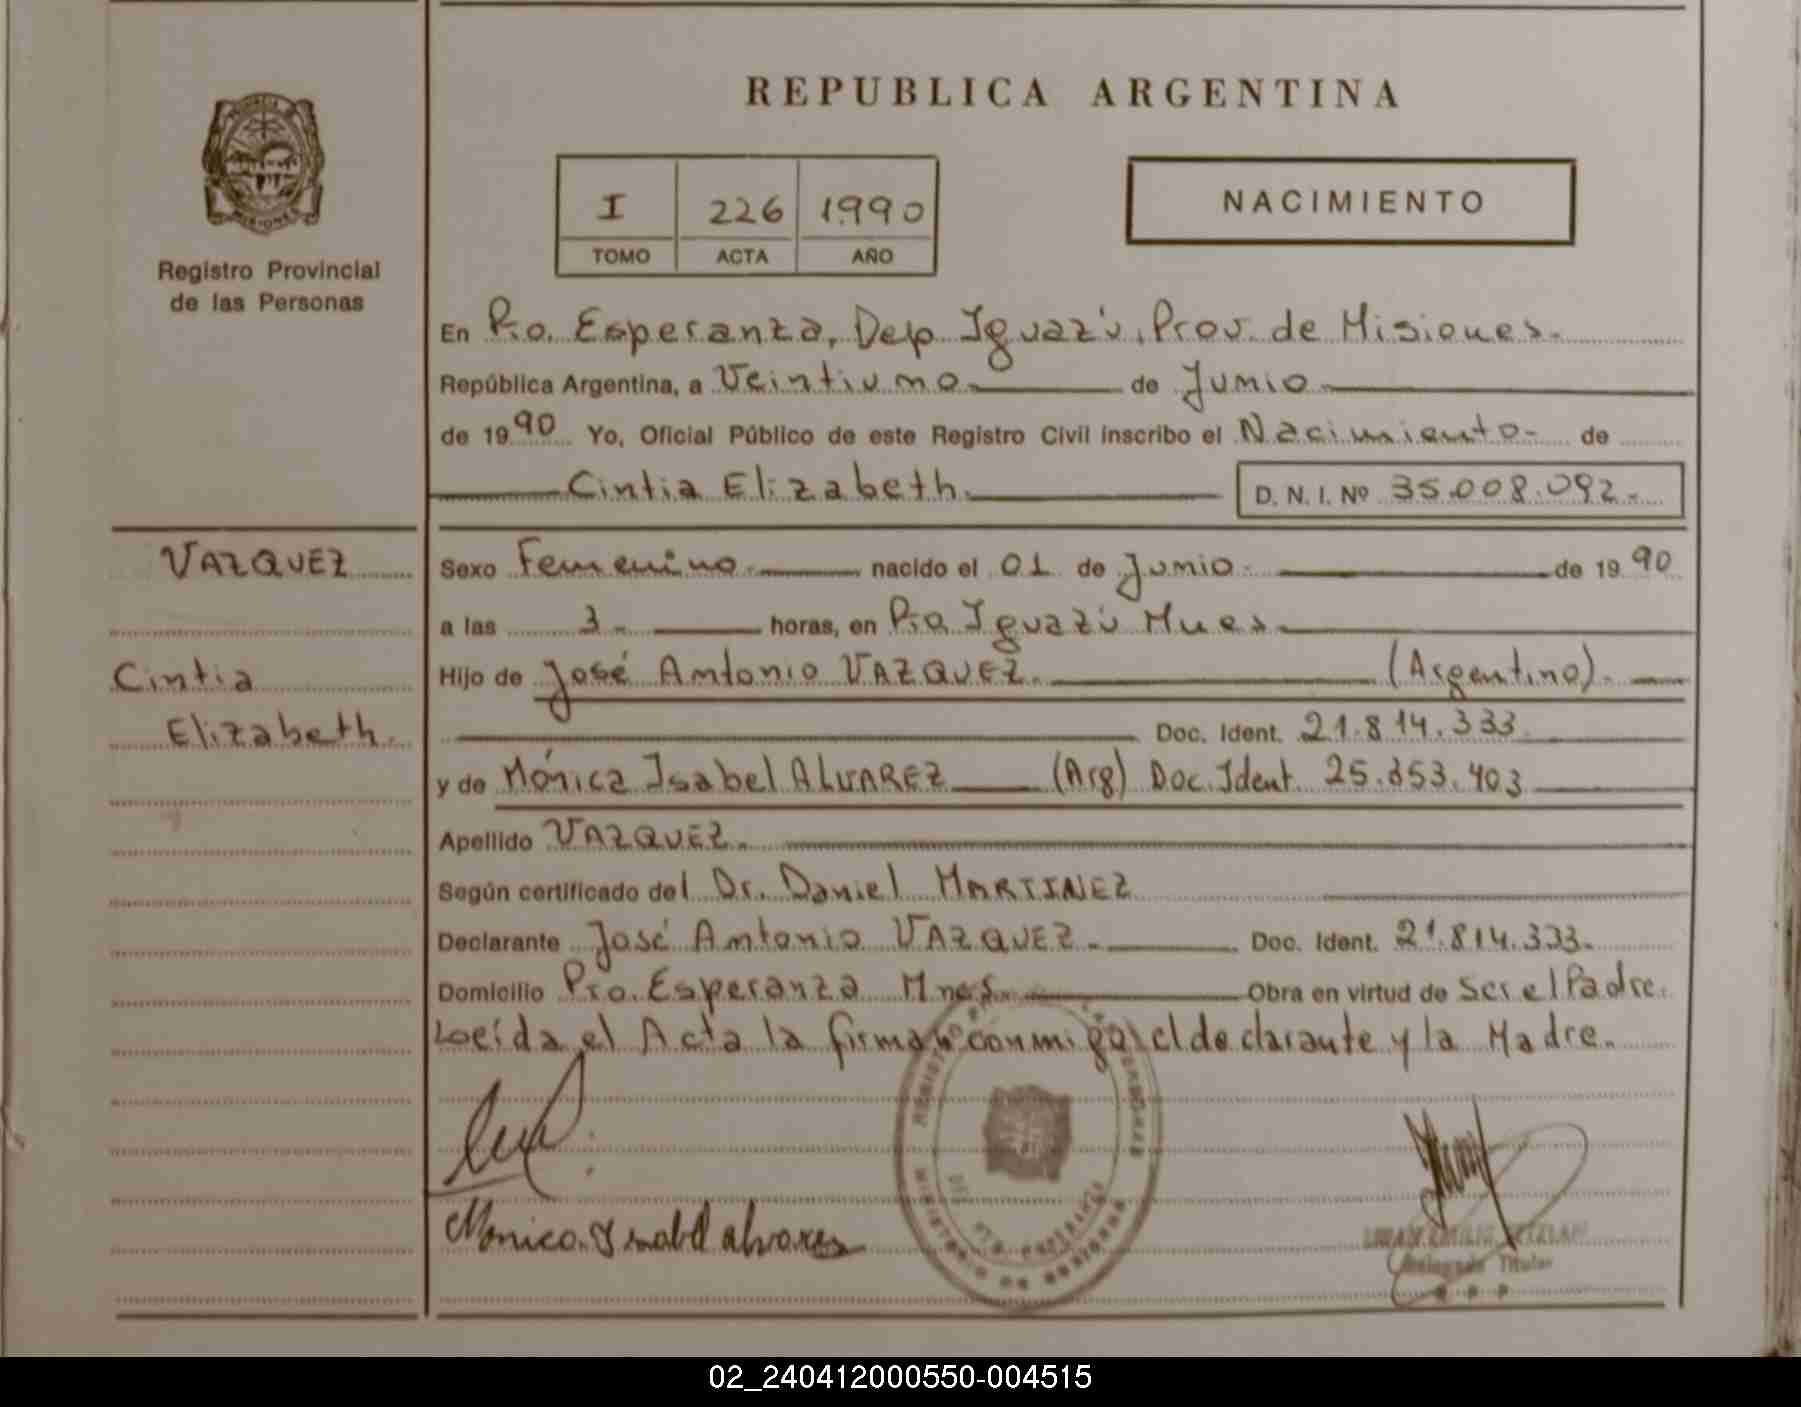 REPUBLICA ARGENTINA
I 226 1990
TOMO ACTA AÑO
NACIMIENTO
MISIONES
Registro Provincial
de las Personas
En Pto. Esperanza, Dep Iguazú, Prov. de Misiones.
República Argentina, a Veintiuno de Junio
de 1990 Yo, Oficial Público de este Registro Civil inscribo el Nacimiento de
Cintia Elizabeth. D. N. I. Nº 35.008.092.
VAZQUEZ
Cintia
Elizabeth.
Sexo Femenino nacido el 01 de Junio de 1990
a las 3 horas, en Pto Iguazú Mnes
Hijo de José Antonio VAZQUEZ. (Argentino).
Doc. Ident. 21.814.333
y de Mónica Isabel ALVAREZ (Arg) Doc. Ident. 25.353.403
Apellido VAZQUEZ.
Según certificado del Dr. Daniel MARTINEZ
Declarante José Antonio VAZQUEZ. Doc. Ident. 21.814.333.
Domicilio Pto. Esperanza Mnes. Obra en virtud de Ser el Padre.
Leída el Acta la firman conmigo el declarante y la Madre.
Monica Ysabel alvarez
Delegado Titular
R P P
02_240412000550-004515